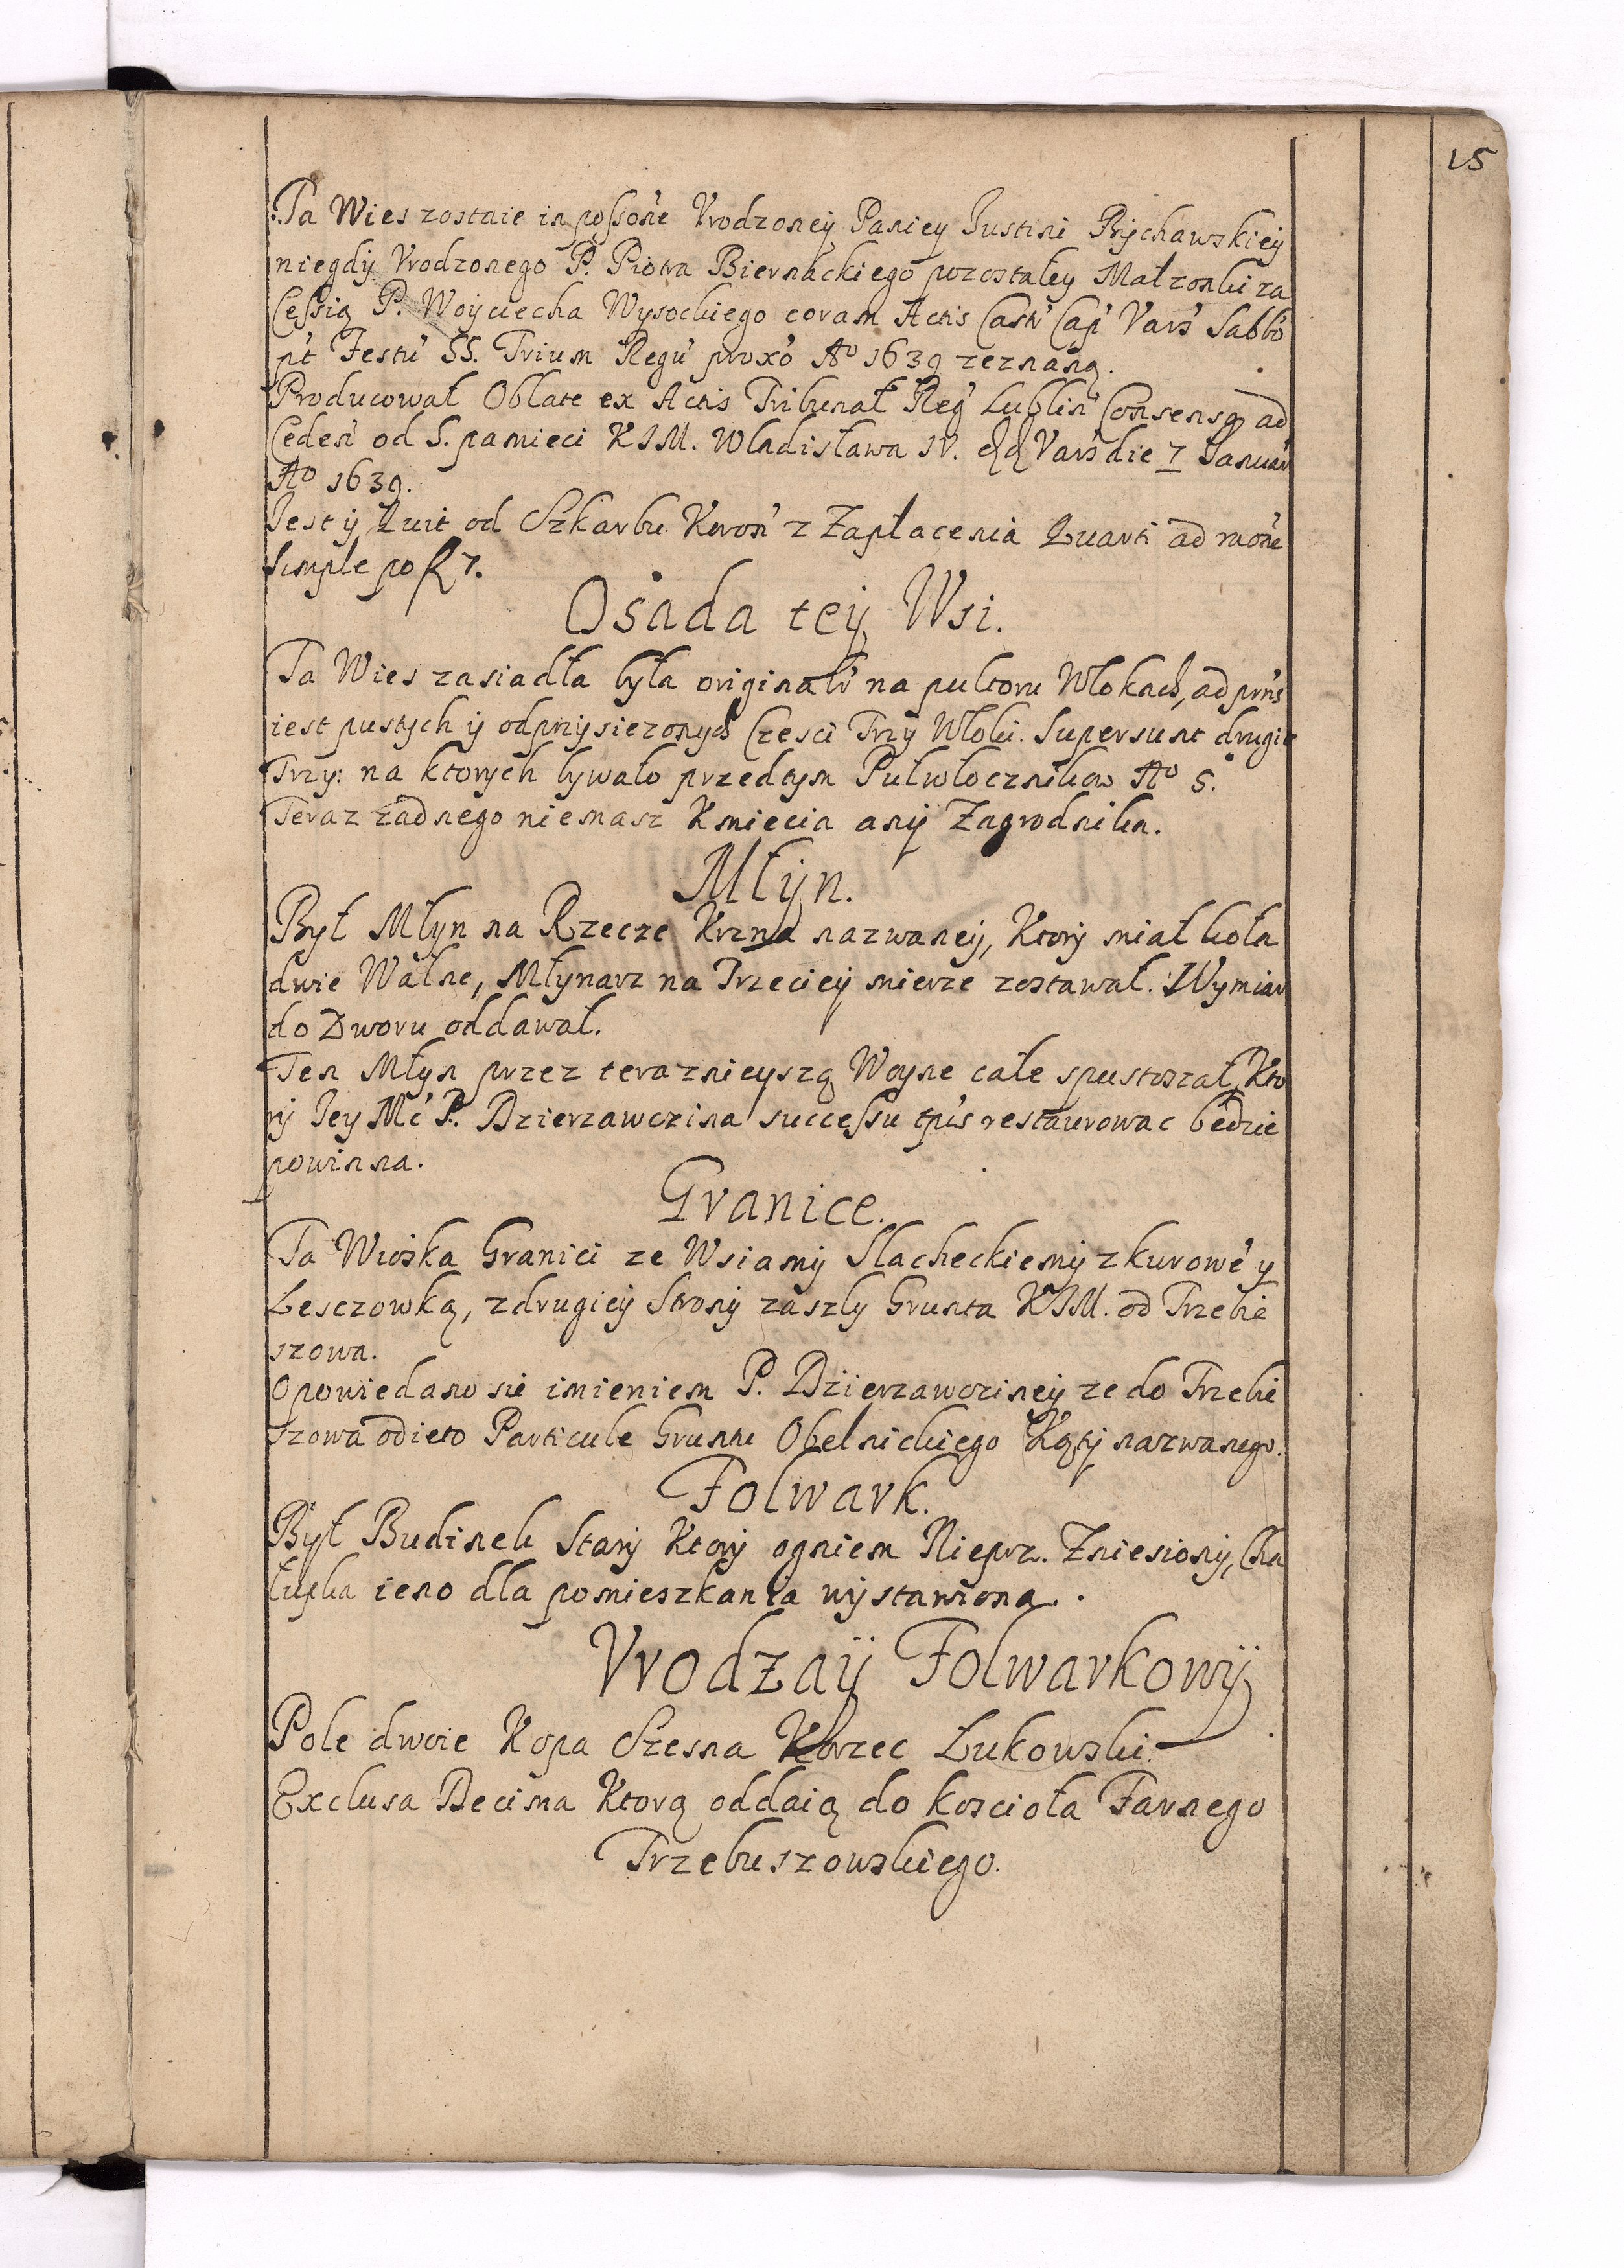 15
Ta Wies zostaie in possone Vrodzoney Paniey Justini Prÿchawskieÿ
niegdÿ Vrodzonego P. Piotra Biernackiego pozostałey Małzonki za
Cessią P. Woÿciecha Wysockiego coram Actis Castr Cap Vars Sabbo
pt Festu SS. Trium Regu proxo Aº 1639 zeznaną.
Producował Oblate ex Actis Tribunał Reg Lublin Consensą ad
Ceden od S. pamieci KJM. Wladisława IV. Vars die 7 Januar
Aº 1639.
Jest ÿ Quit od Szkarbu Koron z Zapłacenia Quarti ad raone
simple po fl 7.
Osada teÿ Wsi.
Ta Wies zasiadła była originalr na pultoru Włokach, ad prns
iest pustych ÿ odprzysiezonych Czesci Trzÿ Włoki. Supersunt drugie
Trzy: na ktorych bywało przedtym Pułwłocznikow Nº 5.
Teraz zadnego niemasz Kmiecia anÿ Zagrodnika.
Młÿn.
Był Młyn na Rzecze Krzna nazwaneÿ, Ktorÿ miał koła
dwie Walne, Młynarz na Trzecieÿ mierze zostawał. Wymiar
do Dworu oddawał.
Ten Młyn przez terazniejszą Woyne cale spustoszał, Kto
rÿ Jey Mć P. Dzierzawczina successu tpis restaurowac bedzie
powinna.
Granice.
Ta Wioska Granici ze Wsiamÿ Slacheckiemÿ z kurowe y
Lesczowką, z drugieÿ Stronÿ zaszly Grunta KJM. od Trzebie
szowa.
Opowiedano sie imieniem P. Dzierzawczineÿ ze do Trzebie
szowa odieto Particule Gruntu Obelnickiego Kątÿ nazwanego.
Folwark.
Bÿł Budinek Starÿ Ktorÿ ogniem Niepr. Zniesionÿ, Cha
łupka ieno dla pomieszkania wÿstawiona.
Vrodzaÿ Folwarkowÿ
Pole dwoie Kopa Czesna Korzec Łukowski.
Exclusa Decima Ktorą oddaią do koscioła Farnego
Trzebuszowskiego.